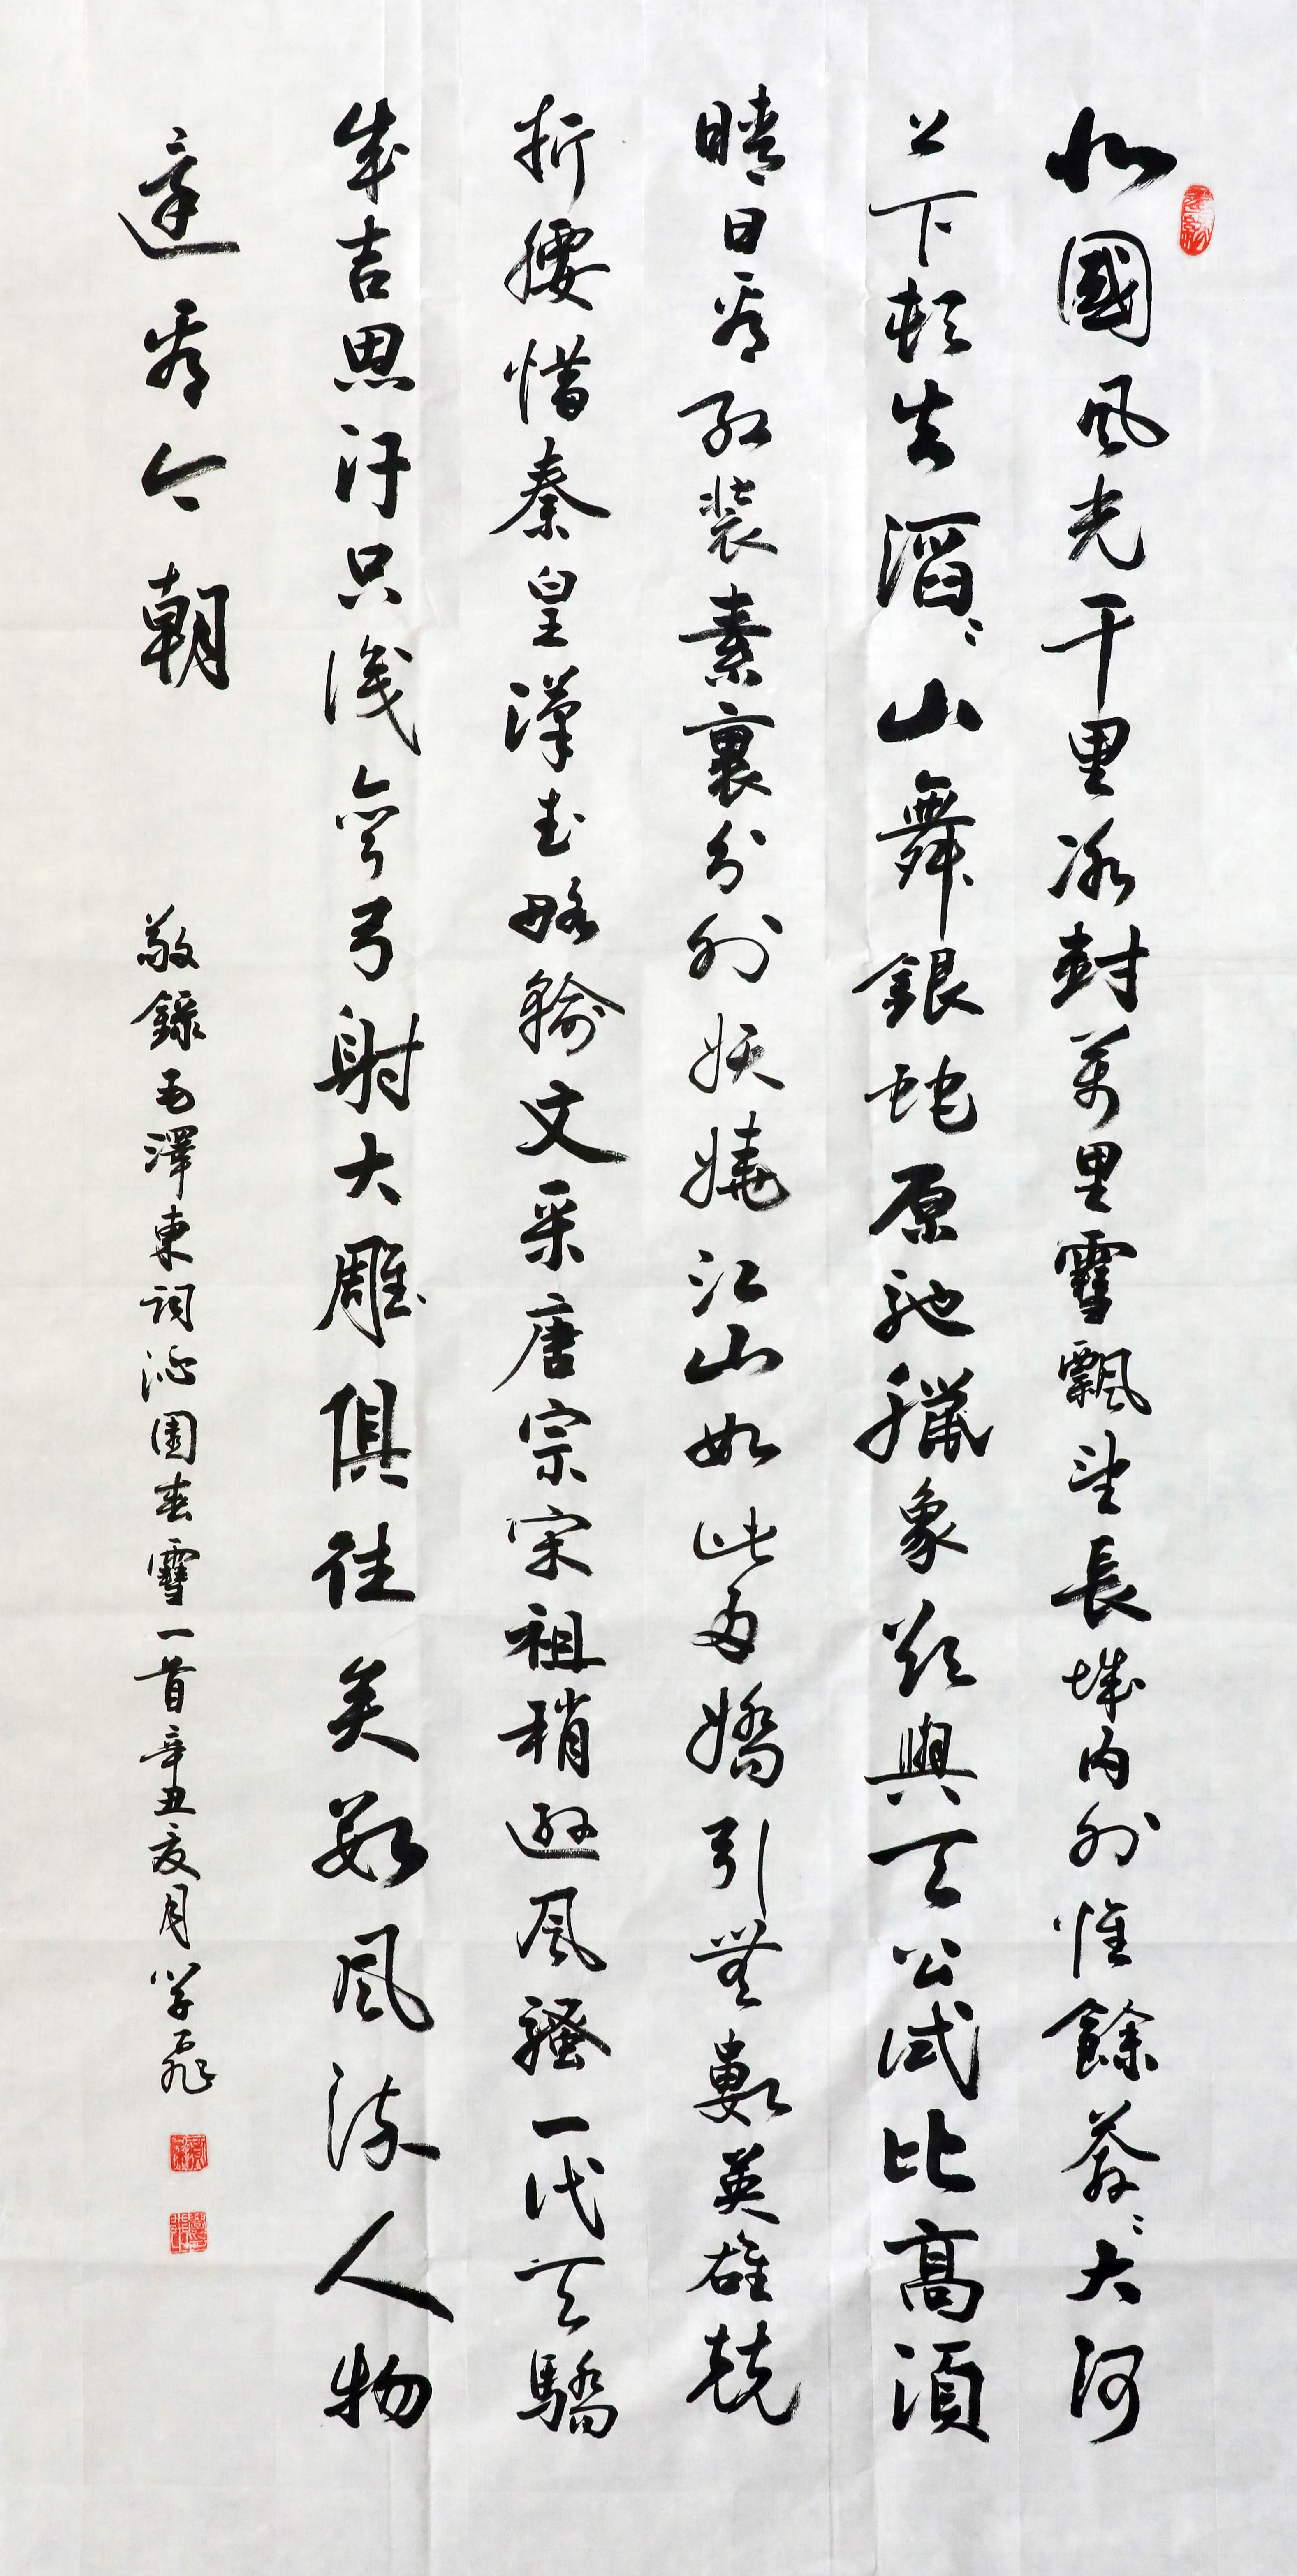 北國風光千里冰封萬里雪飄望長城內外惟餘莽〻大河
上下頓失滔〻山舞銀蛇原馳臘象欲與天公試比高須
晴日看紅裝素裹分外妖嬈江山如此多嬌引無數英雄競
折腰惜秦皇漢武略輸文采唐宗宋祖稍遜風騷一代天驕
成吉思汗只識彎弓射大雕俱往矣數風流人物
還看今朝
敬錄毛澤東詞沁園春雪一首辛丑夏月學飛